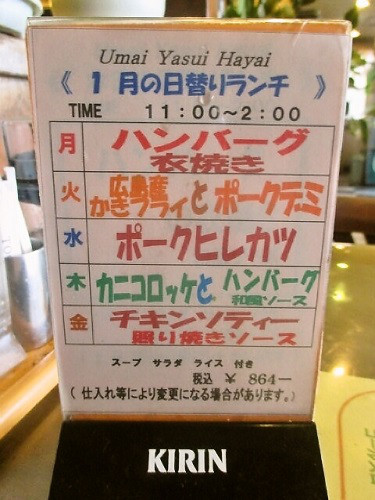 Umai Yasui Hayai
《 1 月の日替りランチ 》
TIME 11:00～2:00
月 ハンバーグ
衣焼き
火 広島産
かきフライ と ポークデミ
水 ポークヒレカツ
木 カニコロッケと ハンバーグ
和風ソース
金 チキンソティー
照り焼きソース
スープ サラダ ライス 付き
税込 ￥ 864―
( 仕入れ等により変更になる場合があります。)
KIRIN